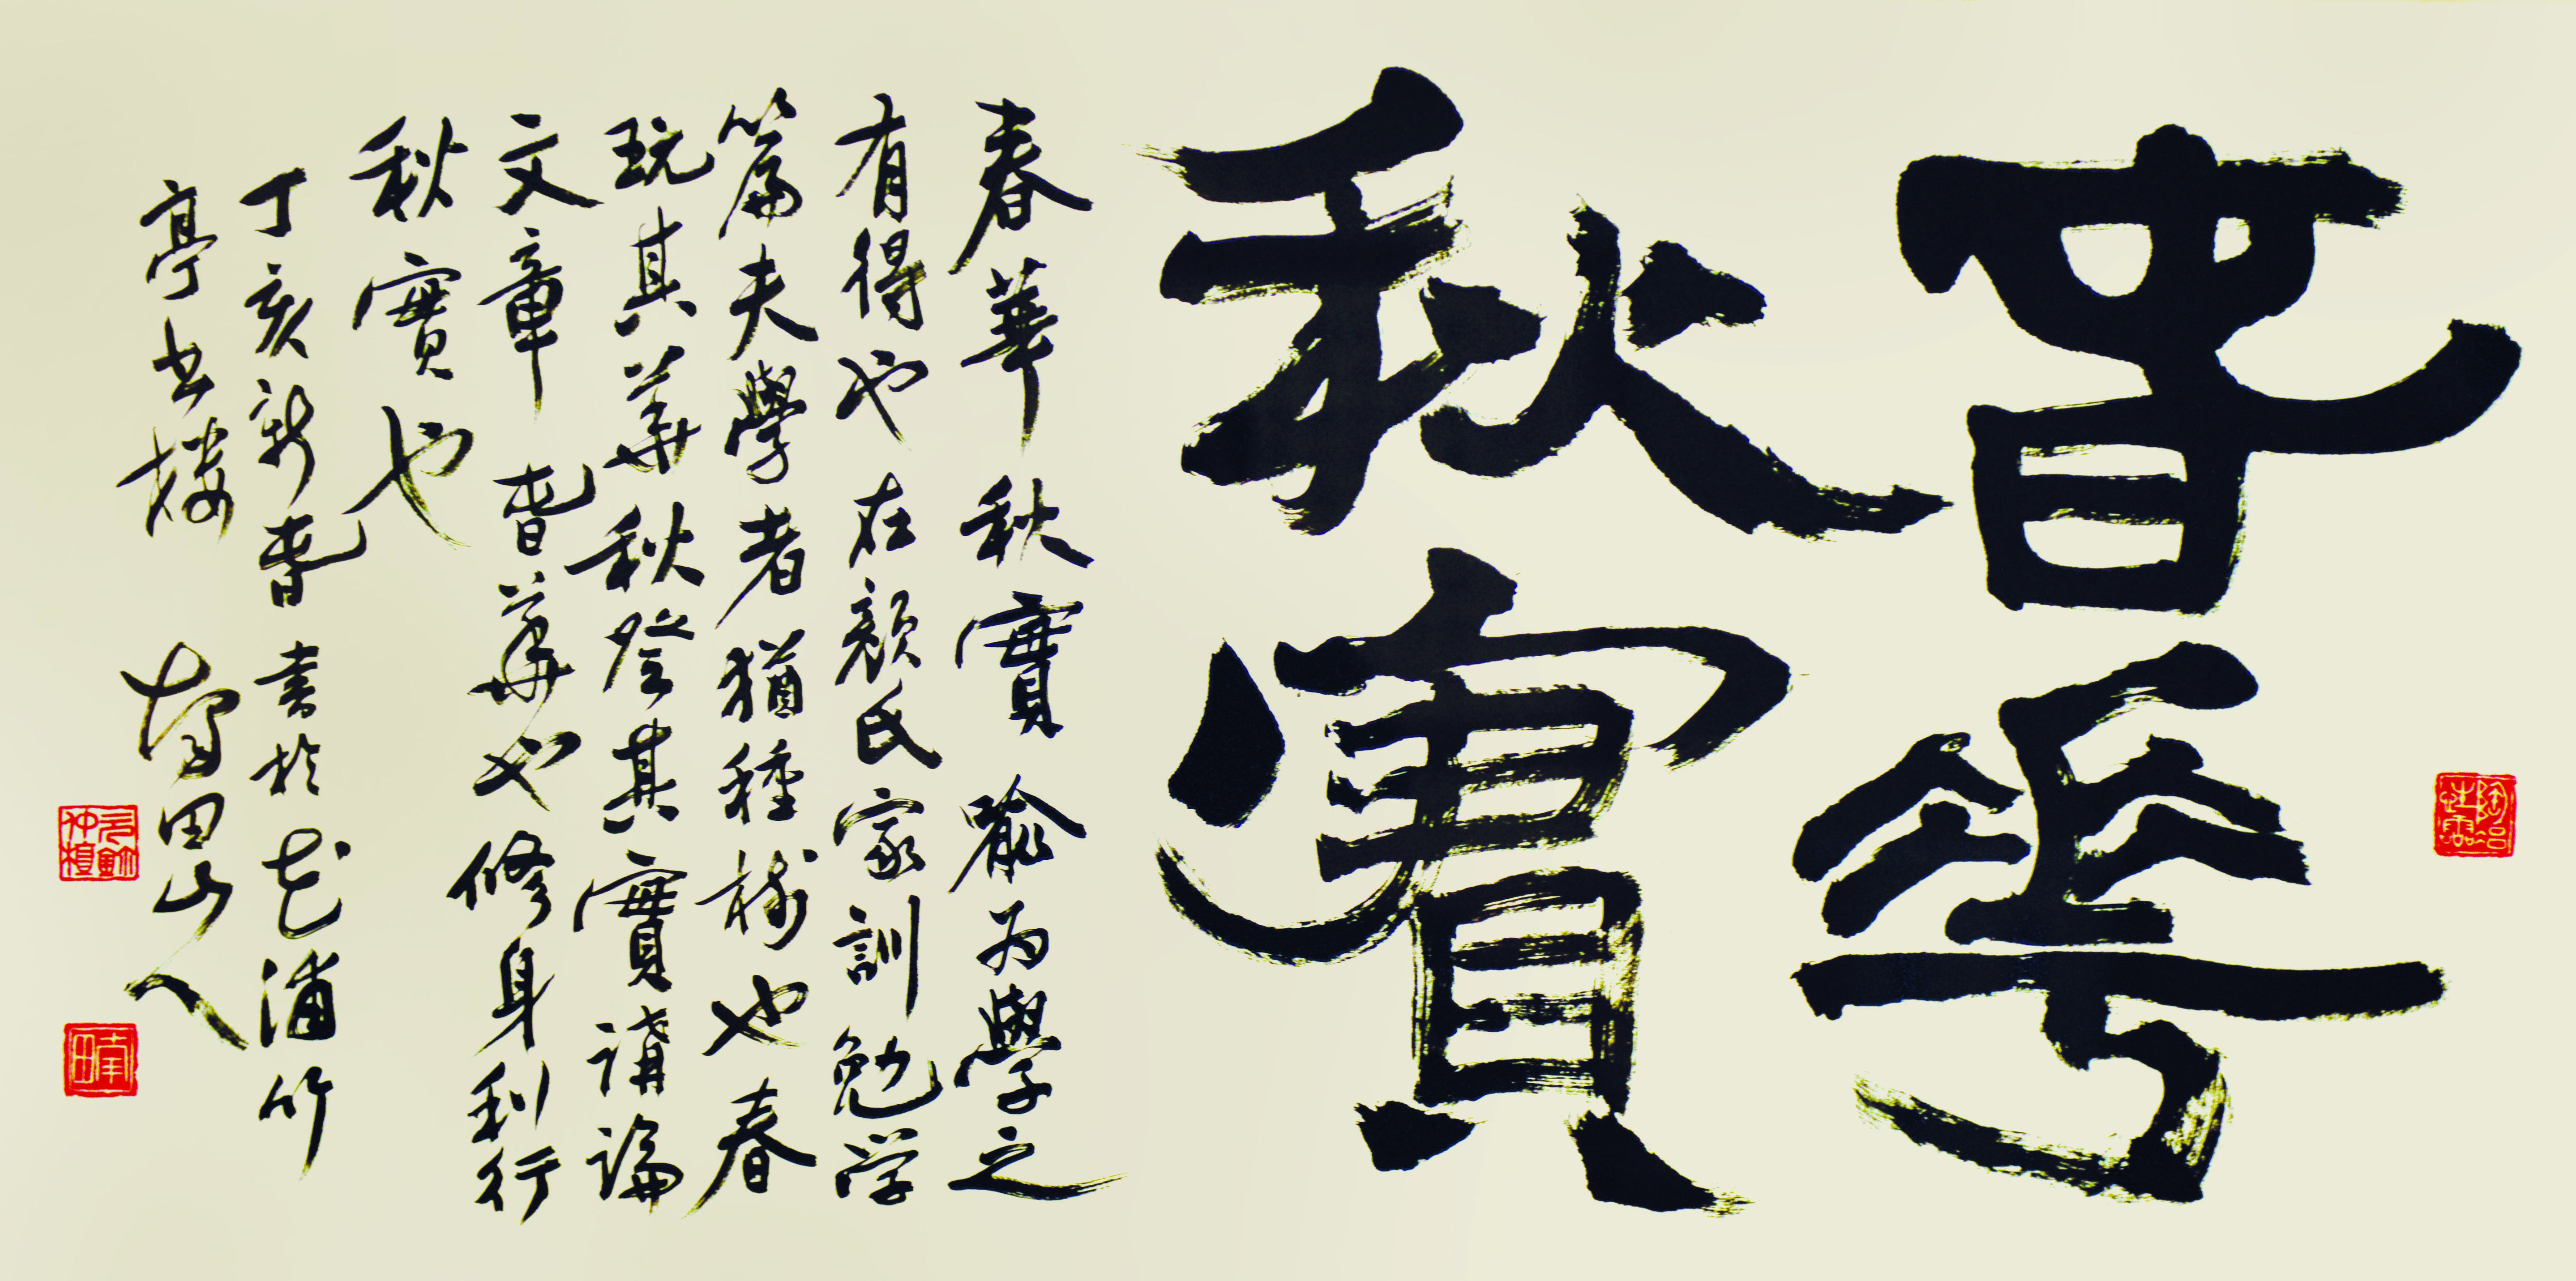 春華
秋實
春華秋實喻为學之
有得也在顏氏家訓勉学
篇夫學者猶種樹也春
玩其華秋登其實講論
文章春華也修身利行
秋實也
丁亥新春書於花浦竹
亭书楼 南田山人
陶冶性靈
南田